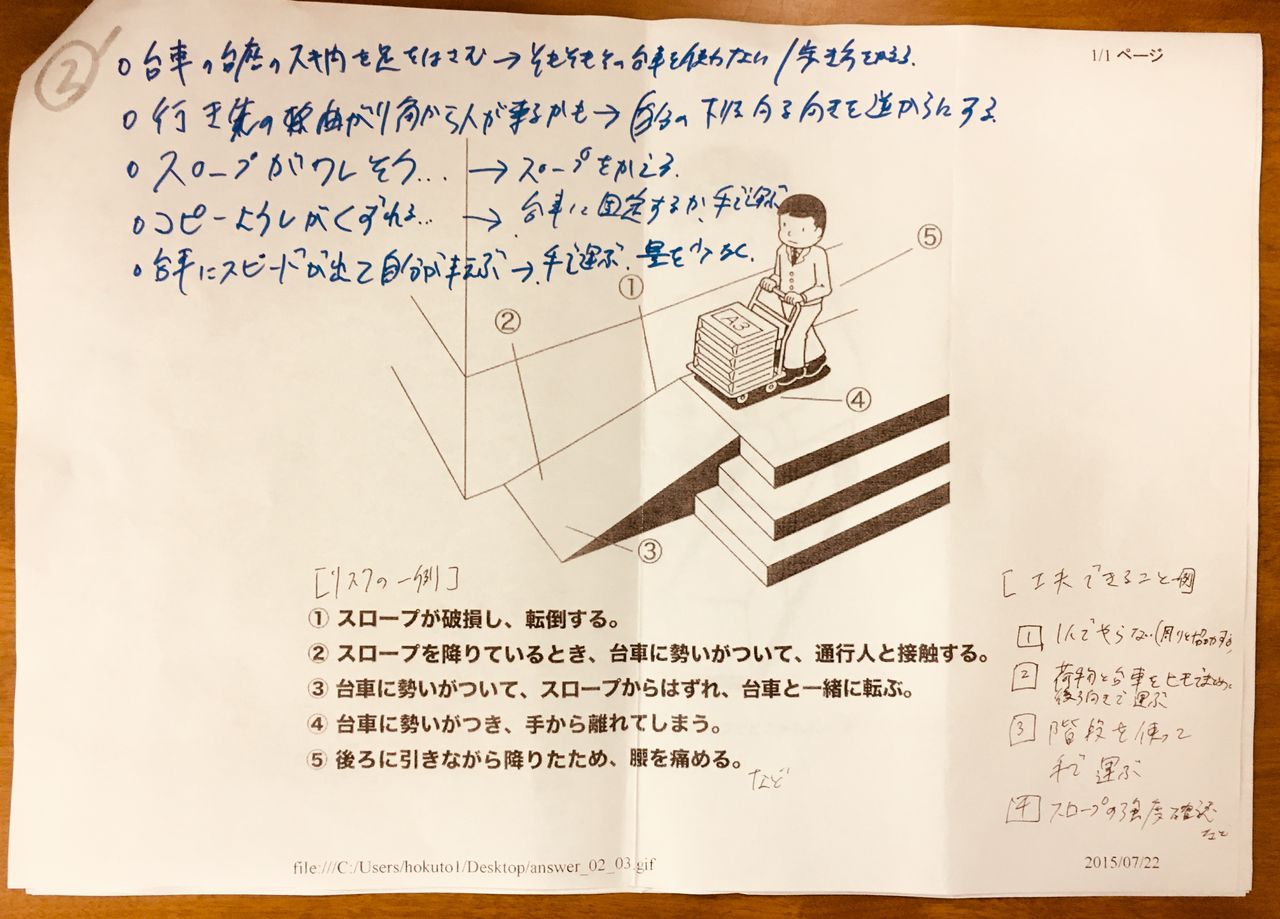 ②
1/1 ページ
○ 台車の台座のスキ間を足をはさむ→そもそもその台車を使わない/歩き方をかえる.
○ 行き先の 曲がり角から人が来るかも→自分の 下りる 向きを逆からにする
○ スロープがワレそう... →スロープをかえる.
○ コピーようしがくずれる... → 台車に固定するか、手で運ぶ
○ 台車にスピードが出て自分が転ぶ→手で運ぶ. 量を少なく.
⑤
①
②
A3
④
③
[リスクの一例]
① スロープが破損し、転倒する。
② スロープを降りているとき、台車に勢いがついて、通行人と接触する。
③ 台車に勢いがついて、スロープからはずれ、台車と一緒に転ぶ。
④ 台車に勢いがつき、手から離れてしまう。
⑤ 後ろに引きながら降りたため、腰を痛める。
など
[工夫できること一例
1 1人でやらない(周りと協力する)
2 荷物と台車をヒモでまとめ、
後ろ向きで運ぶ
3 階段を使って
手で運ぶ
4 スロープの強度確認
など
file:///C:/Users/hokuto1/Desktop/answer_02_03.gif
2015/07/22